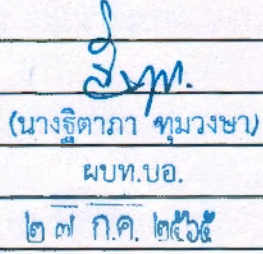 (นางฐิตาภา ทุมวงษา)
ผบท.บอ.
๒๗ ก.ค. ๒๕๖๕